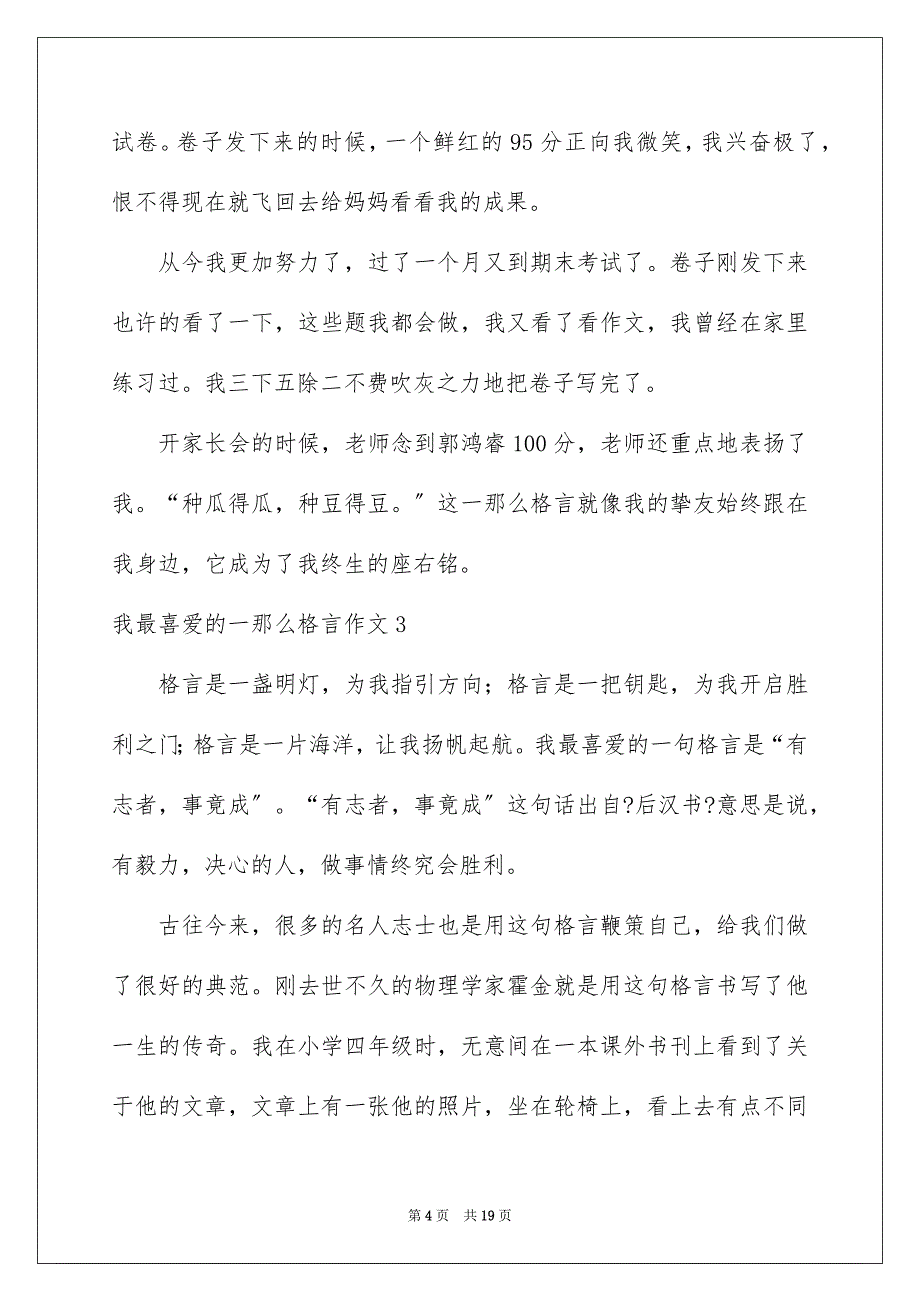 试卷。卷子发下来的时候，一个鲜红的 95 分正向我微笑，我兴奋极了，
恨不得现在就飞回去给妈妈看看我的成果。
从今我更加努力了，过了一个月又到期末考试了。卷子刚发下来
也许的看了一下，这些题我都会做，我又看了看作文，我曾经在家里
练习过。我三下五除二不费吹灰之力地把卷子写完了。
开家长会的时候，老师念到郭鸿睿 100 分，老师还重点地表扬了
我。“种瓜得瓜，种豆得豆。〞这一那么格言就像我的挚友始终跟在
我身边，它成为了我终生的座右铭。
我最喜爱的一那么格言作文 3
格言是一盏明灯，为我指引方向；格言是一把钥匙，为我开启胜
利之门；格言是一片海洋，让我扬帆起航。我最喜爱的一句格言是“有
志者，事竟成〞。“有志者，事竟成〞这句话出自?后汉书?意思是说，
有毅力，决心的人，做事情终究会胜利。
古往今来，很多的名人志士也是用这句格言鞭策自己，给我们做
了很好的典范。刚去世不久的物理学家霍金就是用这句格言书写了他
一生的传奇。我在小学四年级时，无意间在一本课外书刊上看到了关
于他的文章，文章上有一张他的照片，坐在轮椅上，看上去有点不同
第 4 页 共 19 页